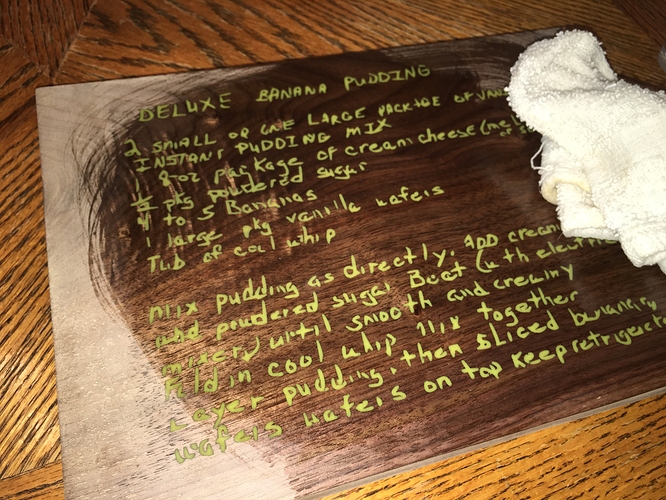 DELUXE BANANA PUDDING
2 SMALL OR ONE LARGE PACKAGE OF VAN
INSTANT PUDDING MIX
1 8oz package of cream cheese (mel
½ pkg powdered sugar
4 to 5 Bananas
1 large pkg vanilla wafers
Tub of cool whip
Mix pudding as directly. ADD cream
and powdered sugar Beat (with electric
mixer) until smooth and creamy
Fold in cool whip Mix together
Layer pudding, then sliced bananas,
wafers wafers on top keep refrigerat